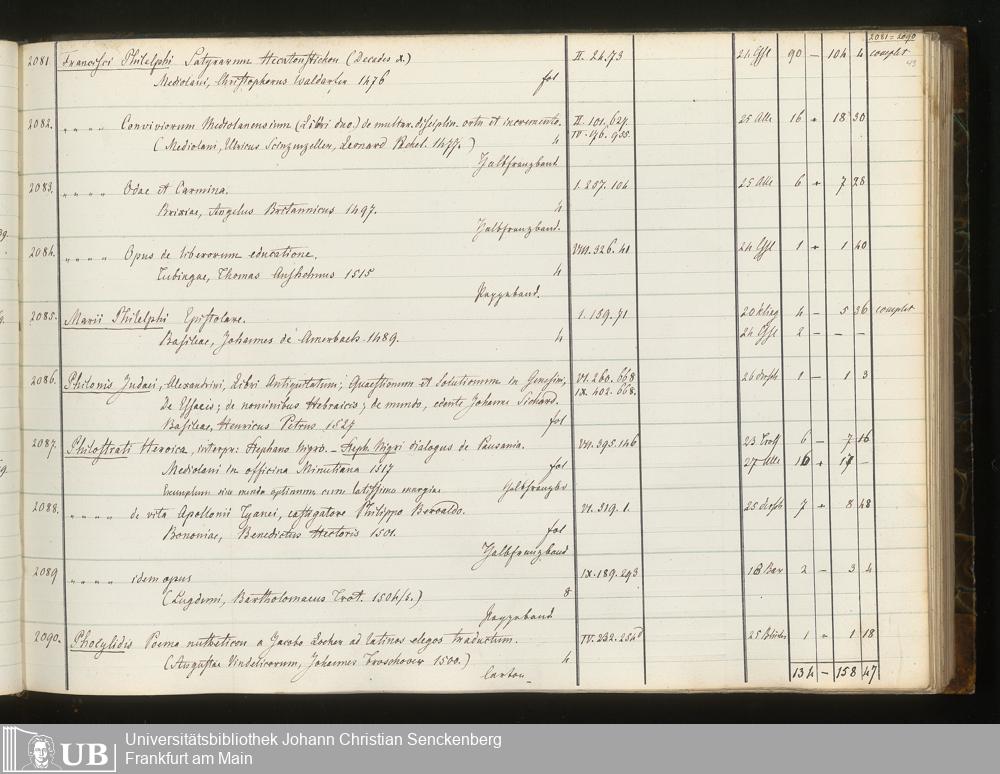 2081 = 2090
2081 Francisci Philelphi Satyrarum Hecatonstichon (Decades x.) II. 24.73 24 90 – 104 4 complet
Mediolani, Christophorus Waldarfer 1476 fol
2082. " " " " Conviviorum Mediolanensium (Libri duo.) de multar. disciplin. ortu et incremento. II. 101. 627. 25 Alle 16 18 30
(Mediolani, Ulricus Scinzinzeller, Leonard Pachel. 1477.) 4 IV. 476. 955.
Halbfranzband
2083. " " " " Odae et Carmina. I. 207. 104 25 Alle 6 7 28
Brixiae, Angelus Britannicus 1497. 4
Halbfranzband.
2084. " " " " Opus de liberorum educatione. VIII. 326. 41 24 1 1 40
Tubingae, Thomas Anshelmus 1515 4
Pappband.
2085. Marii Philelphi Epistolare. I. 139. 71 20 4 – 5 36 complet
Basileae, Johannes de Amerbach 1489. 4 24 2 – – –
2086. Philonis Judaei, Alexandrini, Libri Antiquitatum; Quaestionum et Solutionum in Genesim, VI. 260. 668 26 1 – 1 3
De Essaeis; de nominibus Hebraicis; de mundo, edente Johanne Sichard. IX. 402. 668.
Basileae, Henricus Petrus 1527 fol
2087. Philostrati Heroica, interpr. Stephano Nigro. – Steph. Nigri dialogus de Pausania. VII. 395. 146 23 6 – 7 16
Mediolani in officina Minutiana 1517 fol 27 Alle 16 17 –
Exemplum sive mundo optimum cum latissimo margine Halbfranzbd
2088. " " " " de vita Apollonii Tyanei, castigatore Philippo Beroaldo. VI. 319. 1. 25 7 8 48
Bononiae, Benedictus Hectoris 1501. fol
Halbfranzband
2089 " " " " idem opus IX. 189. 293 18 Bär 2 – 3 4
(Lugduni, Bartholomaeus Trot. 1504/5.) 8
Pappband
2090. Phocylidis Poema nutheticon a Jacobo Locher ad latinos elegos traductum. IV. 232. 254 25 1 1 18
(Augustae Vindelicorum, Johannes Froschover 1500.) 4
Carton
134 – 158 47
UB
Universitätsbibliothek Johann Christian Senckenberg
Frankfurt am Main